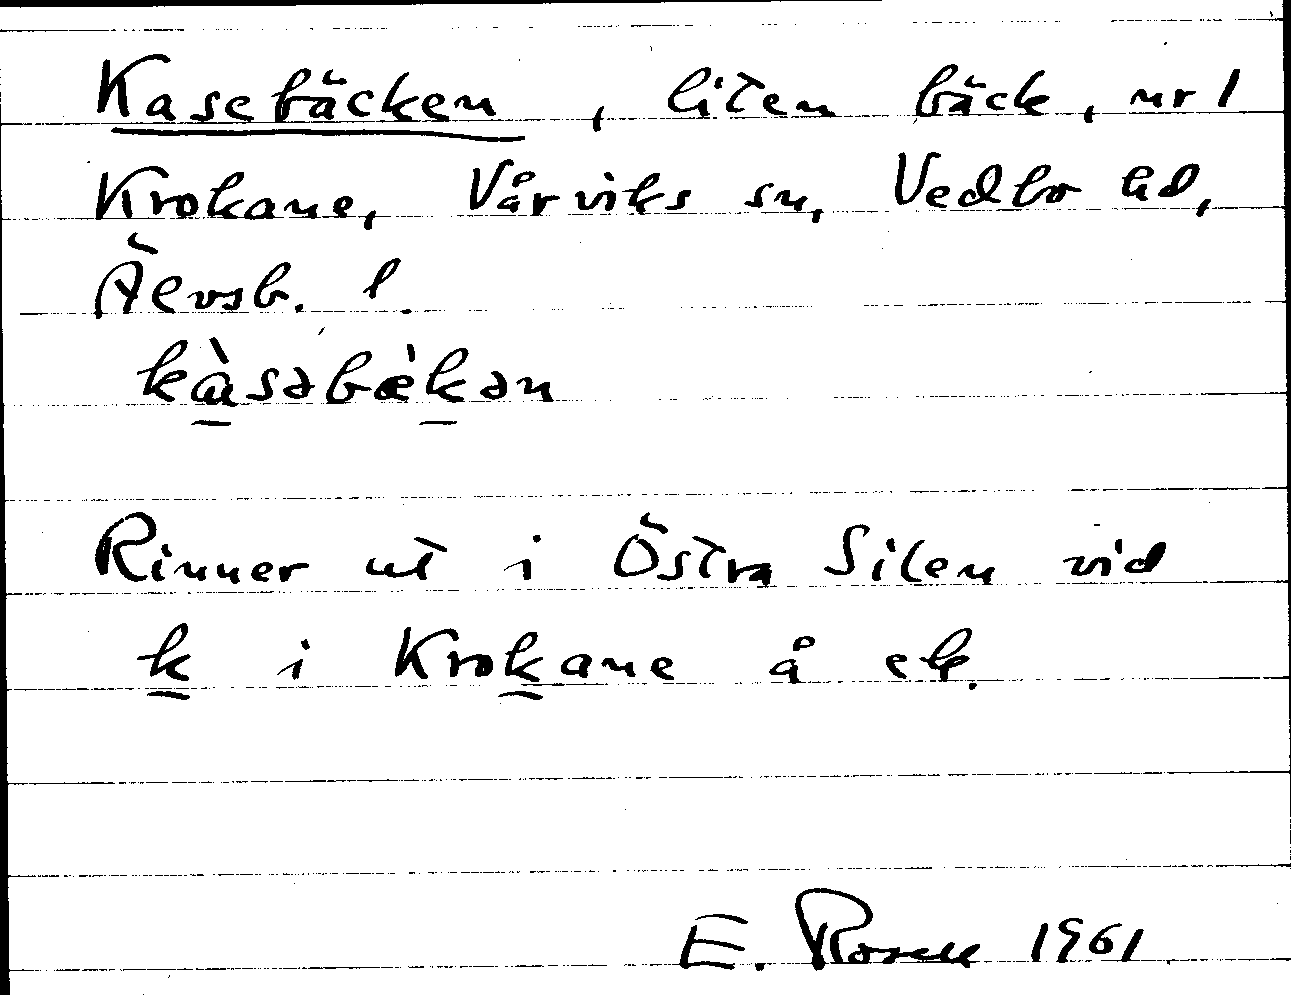 Kasebäcken, liten bäck, nr 1
Krokane, Vårviks sn, Vedbo hd,
Älvsb. l.
kàsəbæ̀kən
Rinner ut i Östra Silen vid
k i Krokane å ek.
E. Rosell 1961